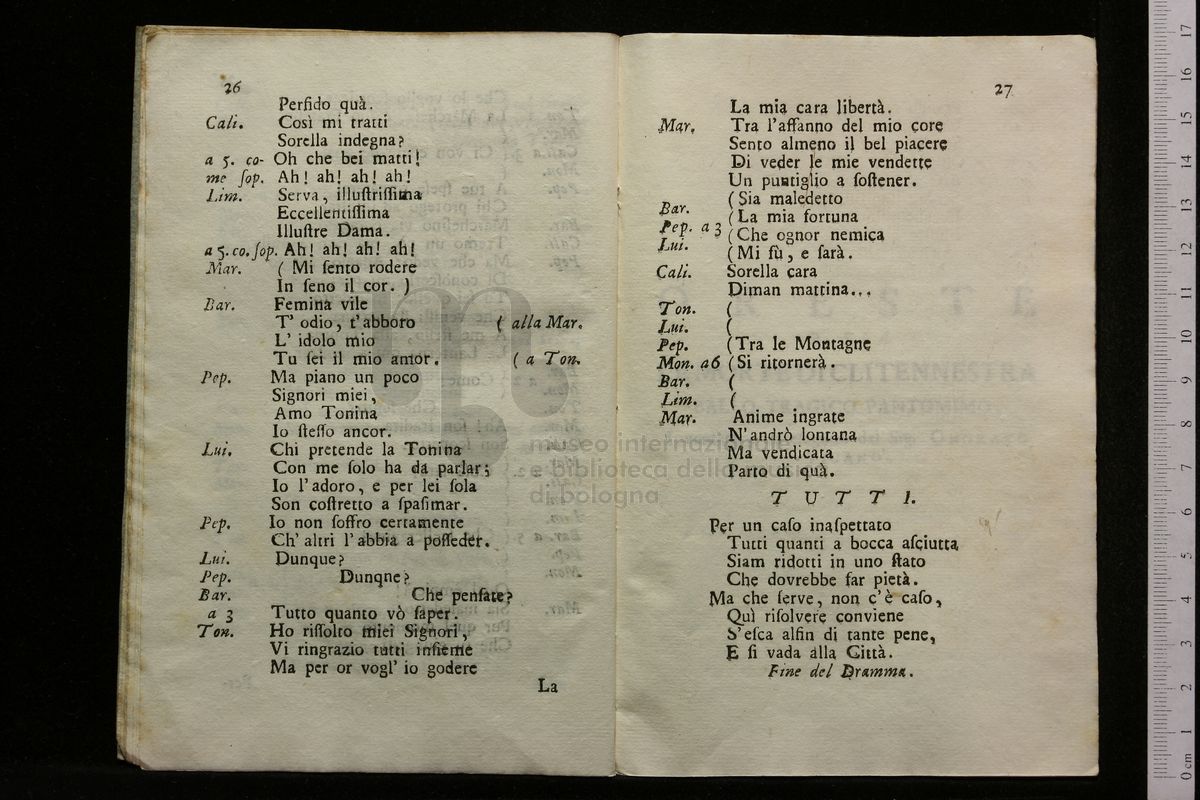 26
Perfido quà.
Cali. Così mi tratti
Sorella indegna?
a 5. co- Oh che bei matti!
me ſop. Ah! ah! ah! ah!
Lim. Serva, illuſtriſſima
Eccellentiſſima
Illuſtre Dama.
a 5. co. ſop. Ah! ah! ah! ah!
Mar. ( Mi ſento rodere
In ſeno il cor. )
Bar. Femina vile
T' odio, t'abboro ( alla Mar.
L' idolo mio
Tu ſei il mio amor. ( a Ton.
Pep. Ma piano un poco
Signori miei,
Amo Tonina
Io ſteſſo ancor.
Lui. Chi pretende la Tonina
Con me ſolo ha da parlar;
Io l'adoro, e per lei ſola
Son coſtretto a ſpaſimar.
Pep. Io non ſoffro certamente
Ch' altri l'abbia a poſſeder.
Lui. Dunque?
Pep. Dunqne?
Bar. Che penſate?
a 3 Tutto quanto vò ſaper.
Ton. Ho riſſolto miei Signori,
Vi ringrazio tutti inſieme
Ma per or vogl' io godere
La
27
La mia cara libertà.
Mar. Tra l'affanno del mio core
Sento almeno il bel piacere
Di veder le mie vendette
Un puntiglio a ſoſtener.
( Sia maledetto
Bar. ( La mia fortuna
Pep. a 3 ( Che ognor nemica
Lui. ( Mi fù, e ſarà.
Cali. Sorella cara
Diman mattina...
Ton. (
Lui. (
Pep. ( Tra le Montagne
Mon. a6 ( Si ritornerà.
Bar. (
Lim. (
Mar. Anime ingrate
N'andrò lontana
Ma vendicata
Parto di quà.
T U T T I.
Per un caſo inaſpettato
Tutti quanti a bocca aſciutta
Siam ridotti in uno ſtato
Che dovrebbe far pietà.
Ma che ſerve, non c'è caſo,
Quì riſolvere conviene
S'eſca alfin di tante pene,
E ſi vada alla Città.
Fine del Dramma.
museo internazionale
e biblioteca della musica
di bologna
0 cm 1 2 3 4 5 6 7 8 9 10 11 12 13 14 15 16 17